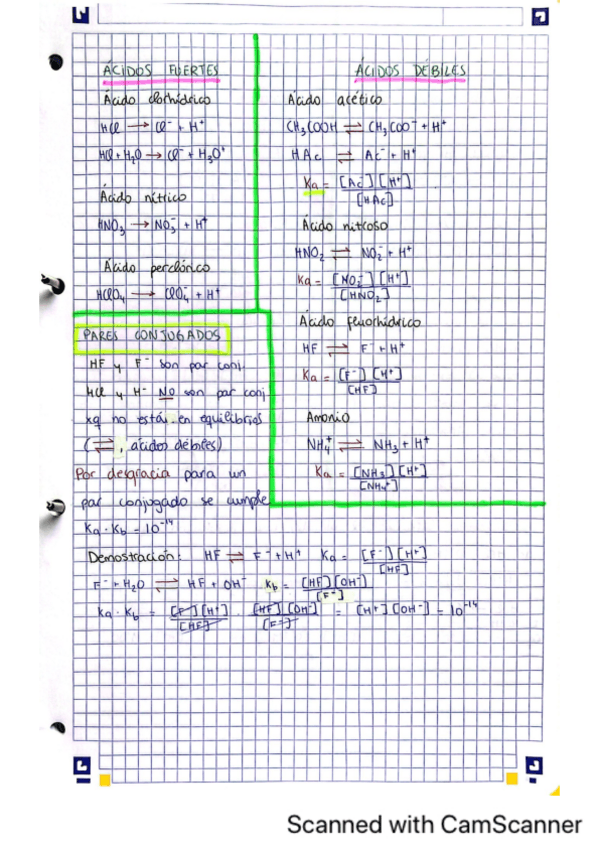 ÁCIDOS FUERTES
Ácido clorhídrico
HCl → Cl⁻ + H⁺
HCl + H₂O → Cl⁻ + H₃O⁺
Ácido nítrico
HNO₃ → NO₃⁻ + H⁺
Ácido perclórico
HClO₄ → ClO₄⁻ + H⁺
ÁCIDOS DÉBILES
Ácido acético
CH₃COOH ⇌ CH₃COO⁻ + H⁺
HAc ⇌ Ac⁻ + H⁺
Ka = [Ac⁻][H⁺] / [HAc]
Ácido nitroso
HNO₂ ⇌ NO₂⁻ + H⁺
Ka = [NO₂⁻][H⁺] / [HNO₂]
Ácido fluorhídrico
HF ⇌ F⁻ + H⁺
Ka = [F⁻][H⁺] / [HF]
Amonio
NH₄⁺ ⇌ NH₃ + H⁺
Ka = [NH₃][H⁺] / [NH₄⁺]
PARES CONJUGADOS
HF y F⁻ son par conj.
HCl y H⁻ NO son par conj
xq no están en equilibrios
(⇌, ácidos débiles)
Por desgracia para un
par conjugado se cumple
Ka · Kb = 10⁻¹⁴
Demostración: HF ⇌ F⁻ + H⁺ Ka = [F⁻][H⁺] / [HF]
F⁻ + H₂O ⇌ HF + OH⁻ Kb = [HF][OH⁻] / [F⁻]
Ka · Kb = [F⁻][H⁺] / [HF] · [HF][OH⁻] / [F⁻] = [H⁺][OH⁻] = 10⁻¹⁴
Scanned with CamScanner